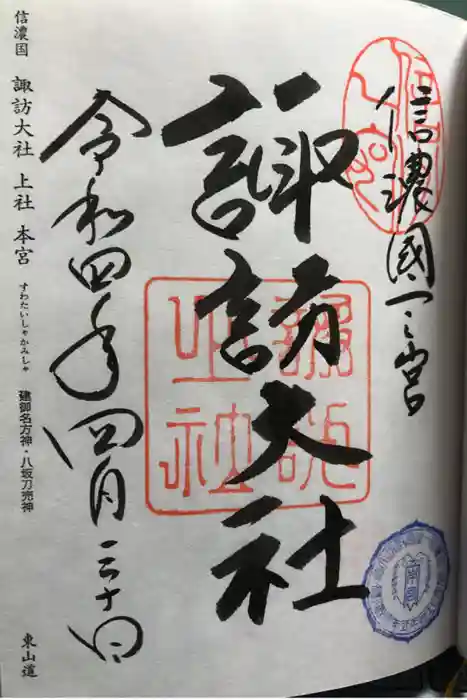 信濃國一之宮
諏訪大社
令和四年四月三十日
信濃国 諏訪大社 上社 本宮 すわたいしゃかみしゃ 建御名方神・八坂刀売神 東山道